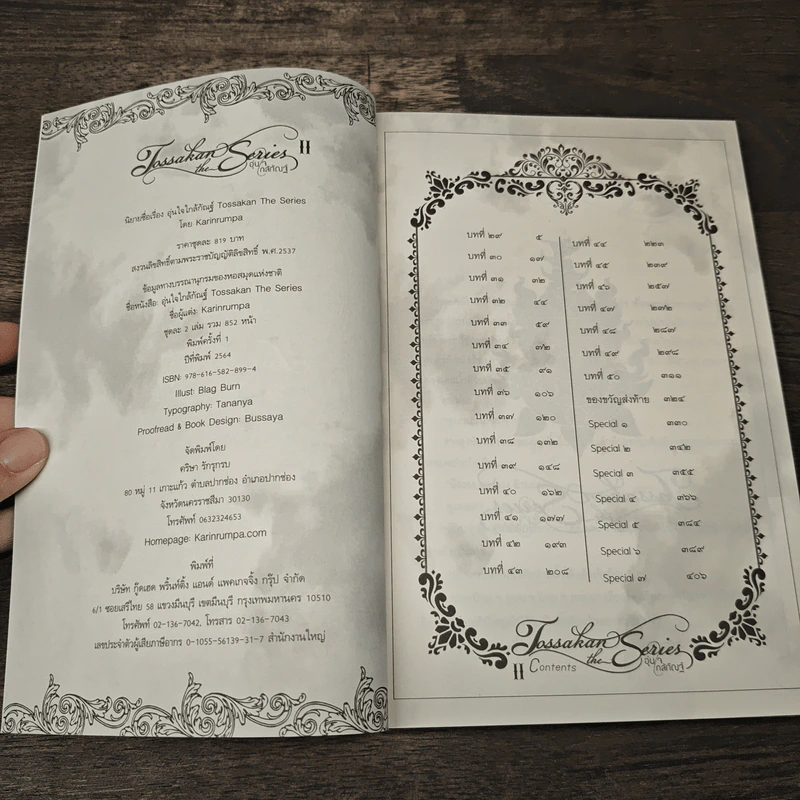 Tossakan
the Series II
อุ่นใจ
ใกล้กัณฐ์
นิยายชื่อเรื่อง อุ่นใจใกล้กัณฐ์ Tossakan The Series
โดย Karinrumpa
ราคาชุดละ 819 บาท
สงวนลิขสิทธิ์ตามพระราชบัญญัติลิขสิทธิ์ พ.ศ.2537
ข้อมูลทางบรรณานุกรมของหอสมุดแห่งชาติ
ชื่อหนังสือ: อุ่นใจใกล้กัณฐ์ Tossakan The Series
ชื่อผู้แต่ง: Karinrumpa
ชุดละ 2 เล่ม รวม 852 หน้า
พิมพ์ครั้งที่ 1
ปีที่พิมพ์ 2564
ISBN: 978-616-582-899-4
Illust: Blag Burn
Typography: Tananya
Proofread & Book Design: Bussaya
จัดพิมพ์โดย
คริษา รักรุกรบ
80 หมู่ 11 เกาะแก้ว ตำบลปากช่อง อำเภอปากช่อง
จังหวัดนครราชสีมา 30130
โทรศัพท์ 0632324653
Homepage: Karinrumpa.com
พิมพ์ที่
บริษัท กู๊ดเฮด พริ้นท์ติ้ง แอนด์ แพคเกจจิ้ง กรุ๊ป จำกัด
6/1 ซอยเสรีไทย 58 แขวงมีนบุรี เขตมีนบุรี กรุงเทพมหานคร 10510
โทรศัพท์ 02-136-7042, โทรสาร 02-136-7043
เลขประจำตัวผู้เสียภาษีอากร 0-1055-56139-31-7 สำนักงานใหญ่
บทที่ ๒๙ ๕
บทที่ ๓๐ ๑๗
บทที่ ๓๑ ๓๒
บทที่ ๓๒ ๔๔
บทที่ ๓๓ ๕๙
บทที่ ๓๔ ๗๒
บทที่ ๓๕ ๙๑
บทที่ ๓๖ ๑๐๖
บทที่ ๓๗ ๑๒๐
บทที่ ๓๘ ๑๓๒
บทที่ ๓๙ ๑๔๘
บทที่ ๔๐ ๑๖๒
บทที่ ๔๑ ๑๗๗
บทที่ ๔๒ ๑๙๓
บทที่ ๔๓ ๒๐๘
บทที่ ๔๔ ๒๒๓
บทที่ ๔๕ ๒๓๙
บทที่ ๔๖ ๒๕๗
บทที่ ๔๗ ๒๗๒
บทที่ ๔๘ ๒๘๗
บทที่ ๔๙ ๒๙๘
บทที่ ๕๐ ๓๑๑
ของขวัญส่งท้าย ๓๒๔
Special ๑ ๓๓๐
Special ๒ ๓๔๒
Special ๓ ๓๕๕
Special ๔ ๓๖๖
Special ๕ ๓๘๔
Special ๖ ๓๘๙
Special ๗ ๔๐๖
Tossakan
the Series
อุ่นใจ
ใกล้กัณฐ์
II Contents